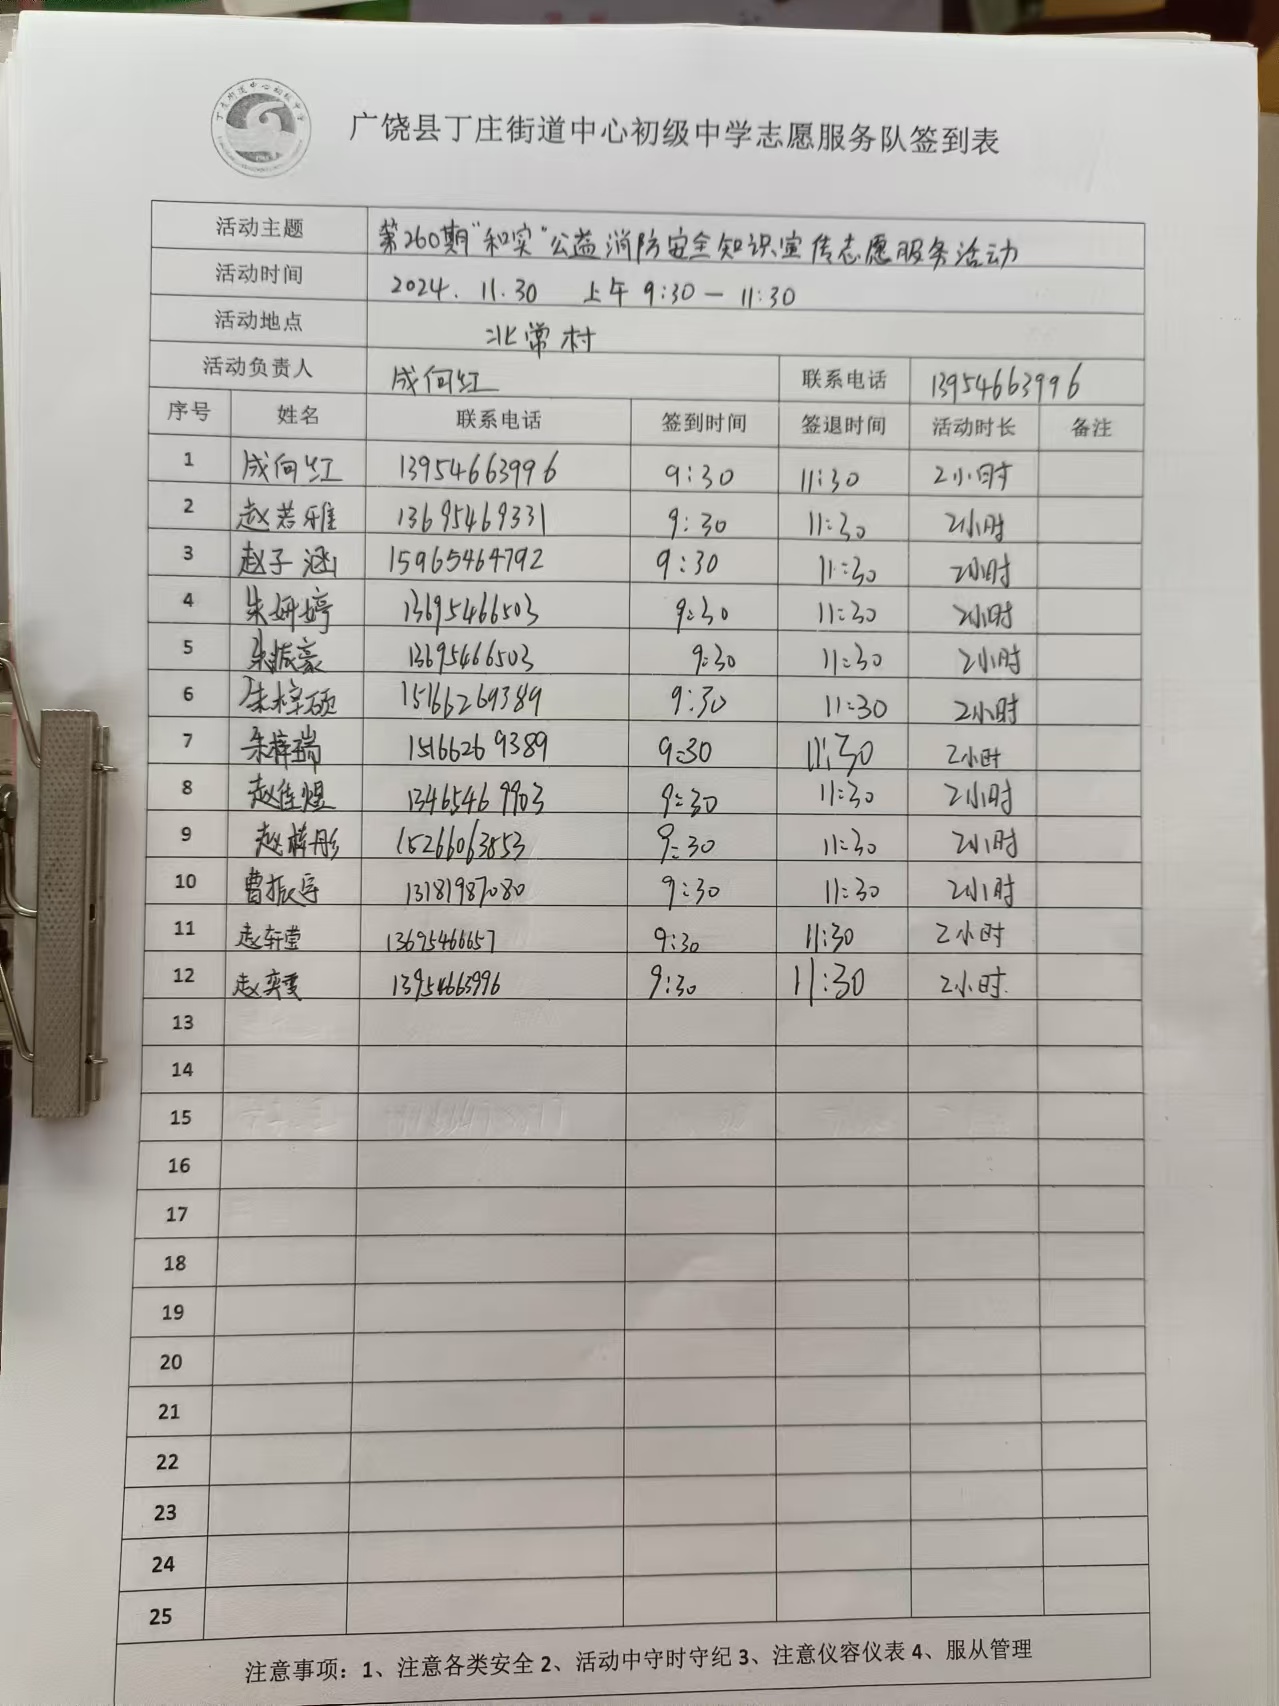 广饶县丁庄街道中心初级中学志愿服务队签到表
活动主题 第260期"和实"公益消防安全知识宣传志愿服务活动
活动时间 2024.11.30 上午 9:30-11:30
活动地点 北常村
活动负责人 成向红 联系电话 13954663996
序号 姓名 联系电话 签到时间 签退时间 活动时长 备注
1 成向红 13954663996 9:30 11:30 2小时
2 赵若雅 13695469331 9:30 11:30 2小时
3 赵子涵 15965464792 9:30 11:30 2小时
4 朱妍婷 13695466503 9:30 11:30 2小时
5 朱振豪 13695466503 9:30 11:30 2小时
6 朱梓硕 15166269389 9:30 11:30 2小时
7 朱梓瑞 15166269389 9:30 11:30 2小时
8 赵佳煜 13465469903 9:30 11:30 2小时
9 赵梓彤 15266063853 9:30 11:30 2小时
10 曹振宇 13181987080 9:30 11:30 2小时
11 赵轩莹 13695466657 9:30 11:30 2小时
12 赵奕雯 13954663996 9:30 11:30 2小时.
13
14
15
16
17
18
19
20
21
22
23
24
25
注意事项：1、注意各类安全 2、活动中守时守纪 3、注意仪容仪表 4、服从管理